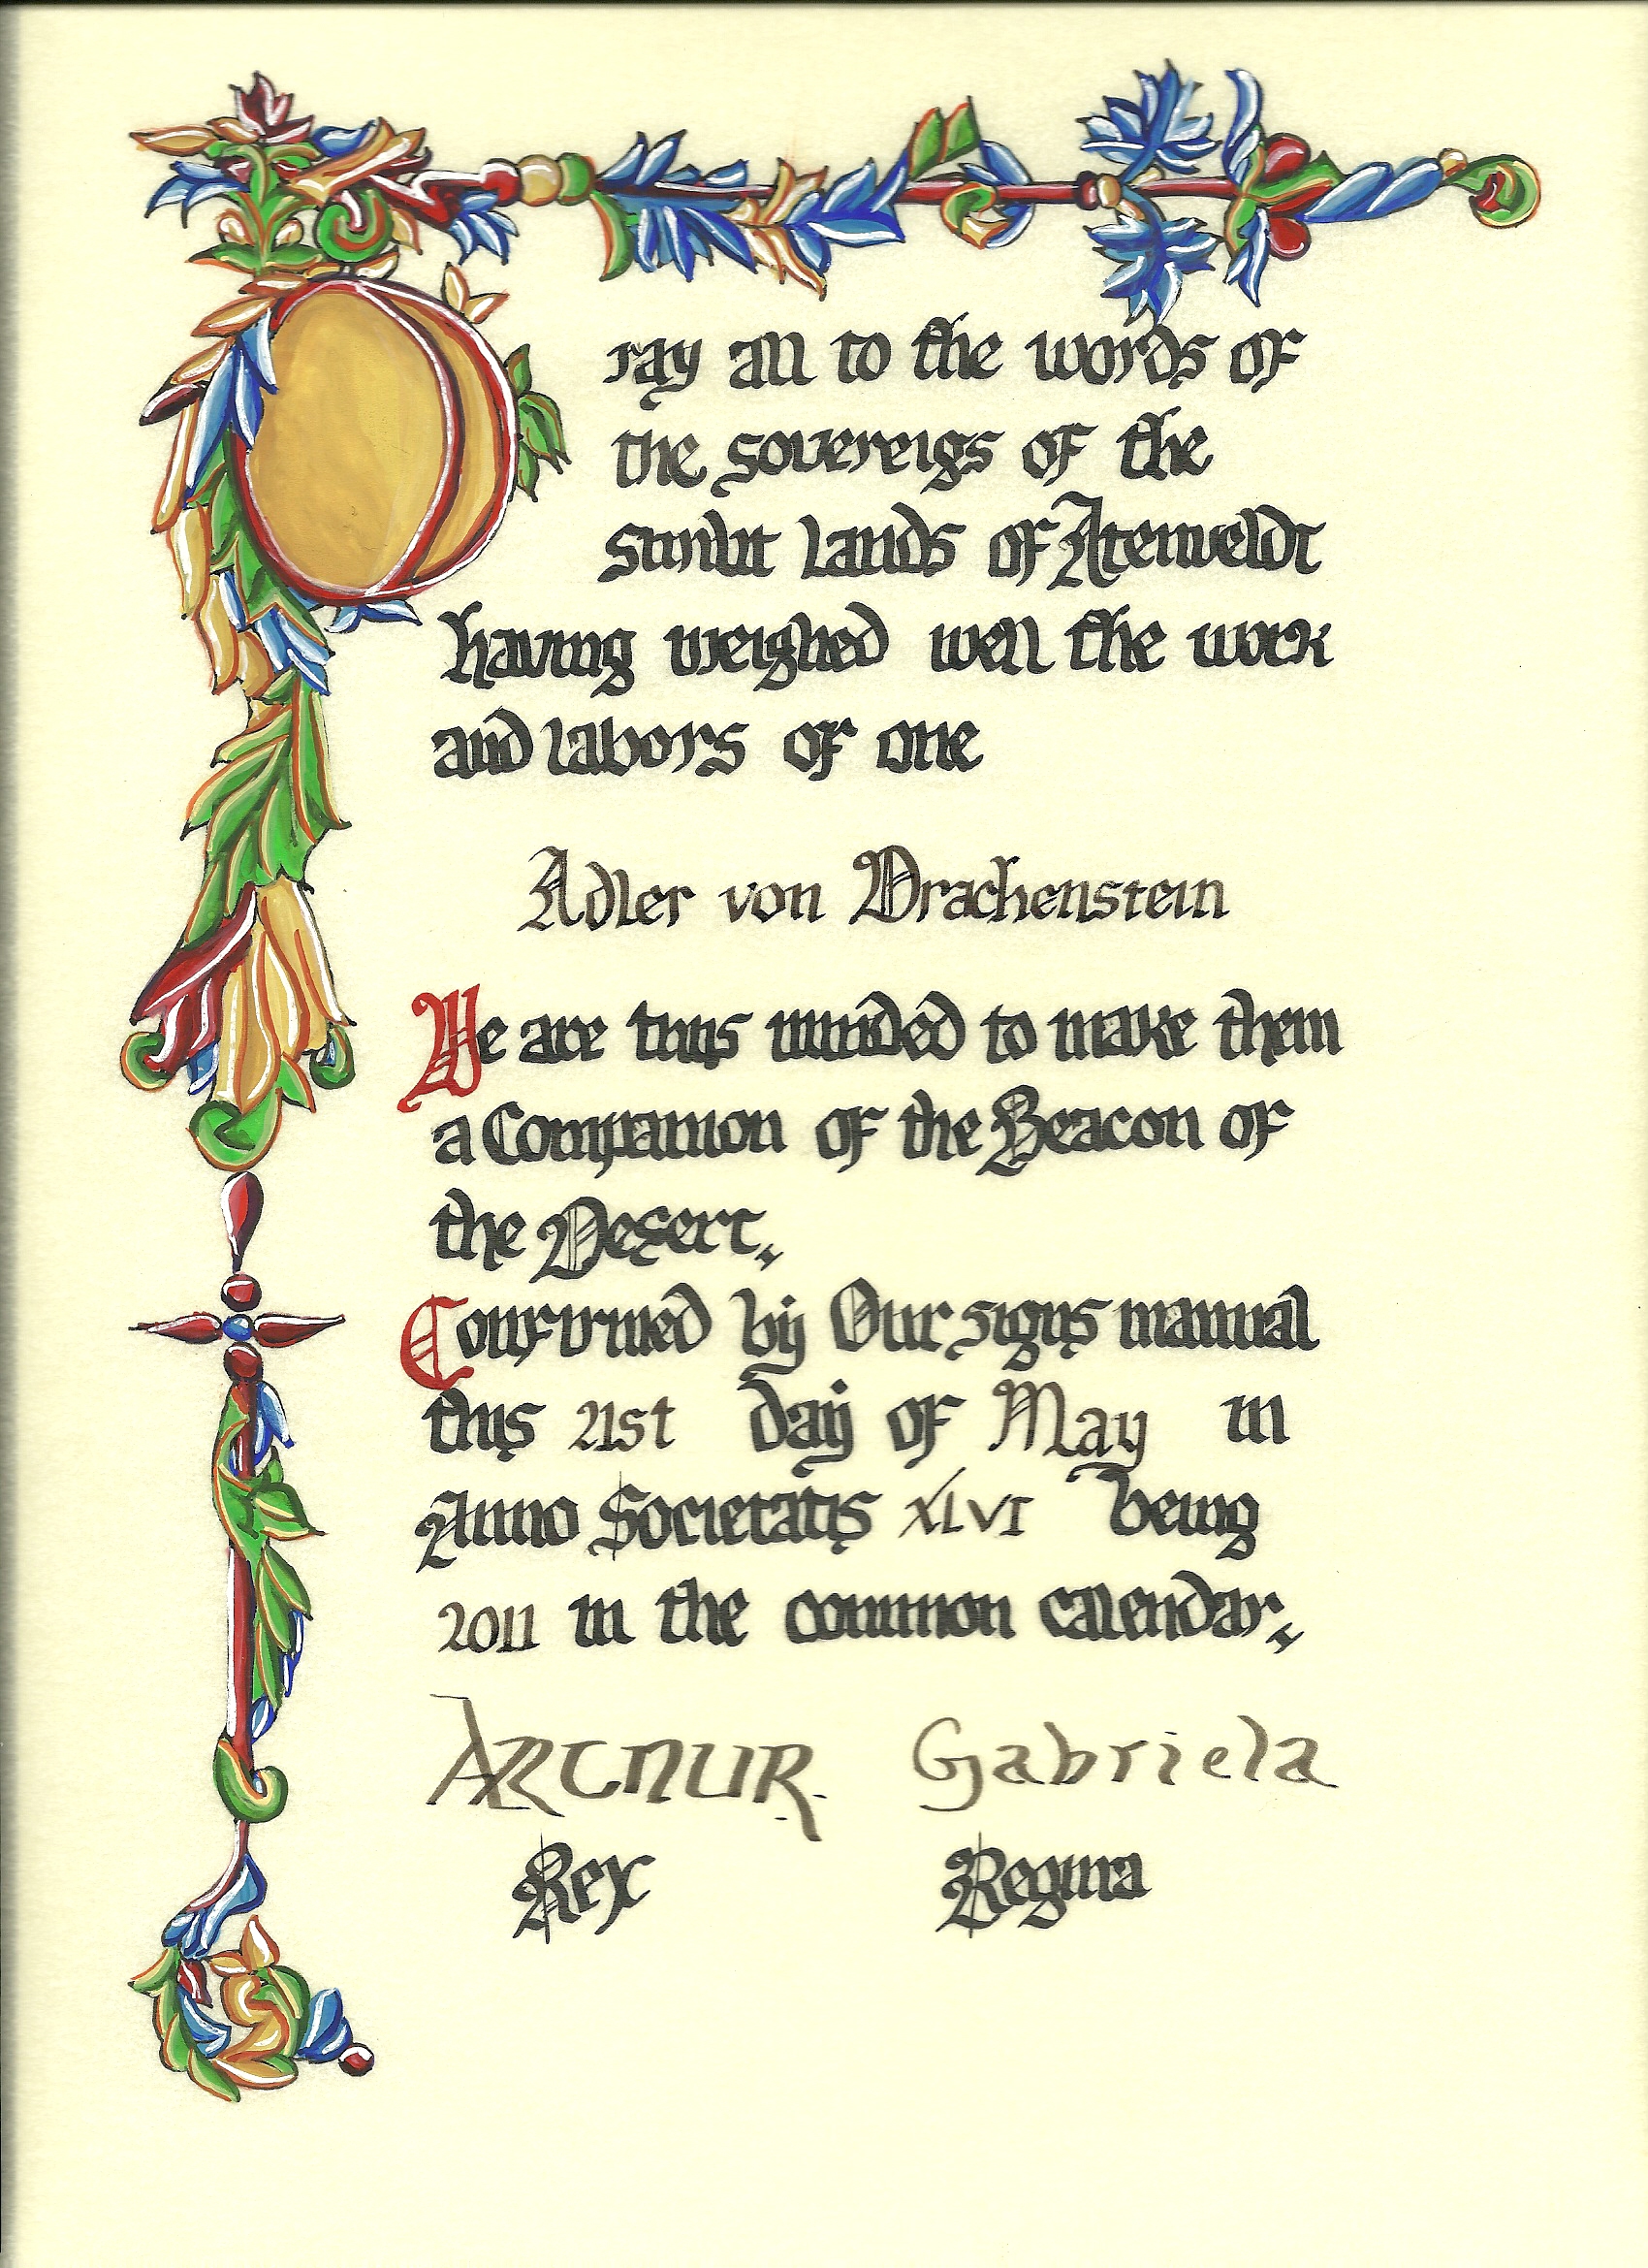 Pray all to the words of
the sovereigs of the
sunlit lands of Atenveldt
having weighed well the work
and labors of one
Adler von Drachenstein
We are thus minded to make them
a Companion of the Beacon of
the Desert.
Confirmed by Our signs manual
this 21st day of May in
Anno Societatis XLVI being
2011 in the common calendar.
Arthur Gabriela
Rex Regina